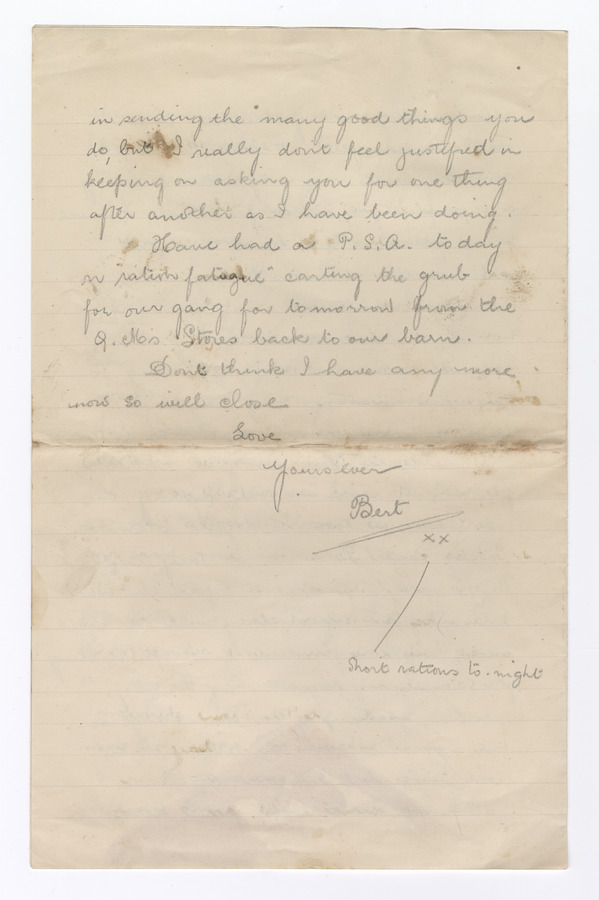 in sending the many good things you
do, but I really dont feel justified in
keeping on asking you for one thing
after another as I have been doing.
Have had a P.S.A. today
"ration fatague" carting the grub
for our gang for tomorrow from the
Q.Ms Stores back to our barn.
Dont think I have any more
now so will close
Love
Yours ever
Bert
xx
Short rations to-night